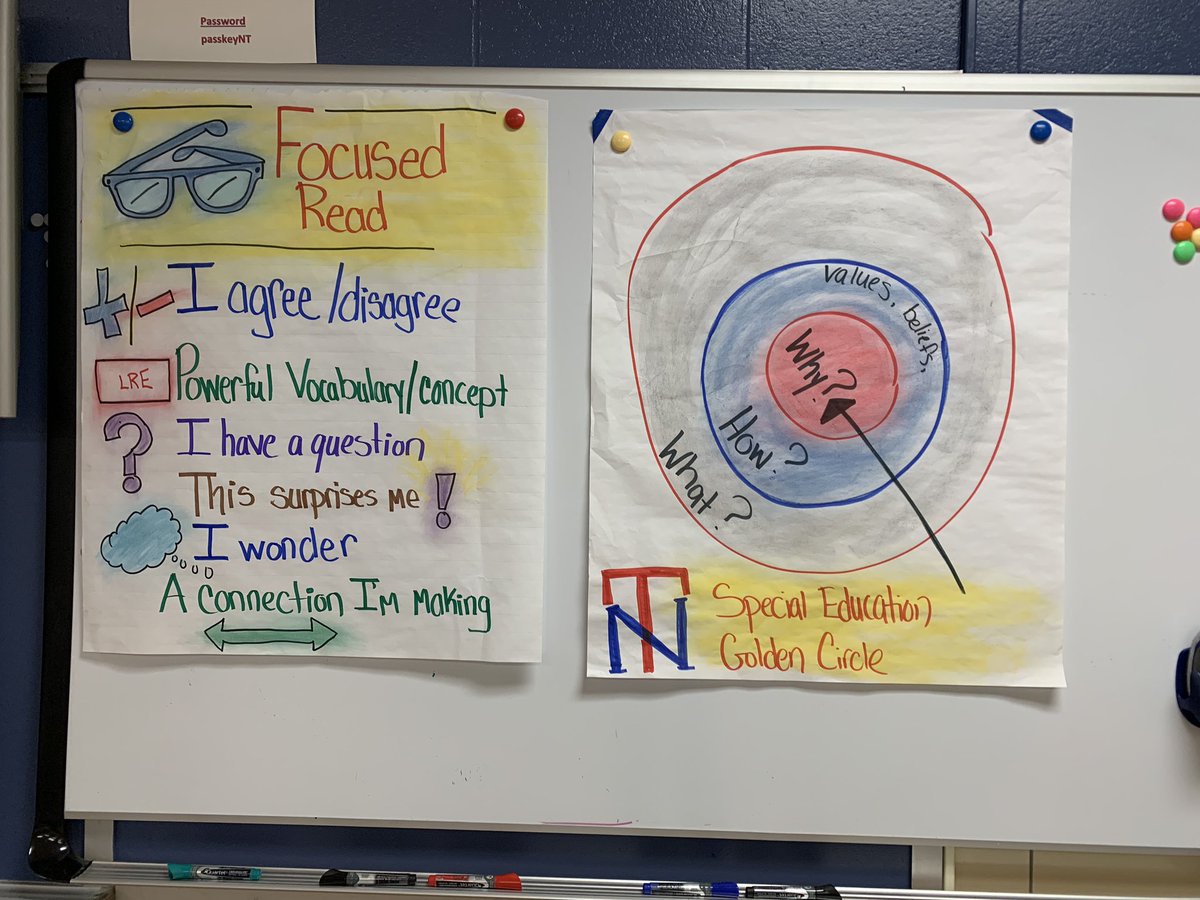 Password
passkeyNT
Focused
Read
+/- I agree/disagree
LRE Powerful Vocabulary/concept
? I have a question
This surprises me !
I wonder
A connection I'm making
values, beliefs,
Why?
How?
What?
NT
Special Education
Golden Circle